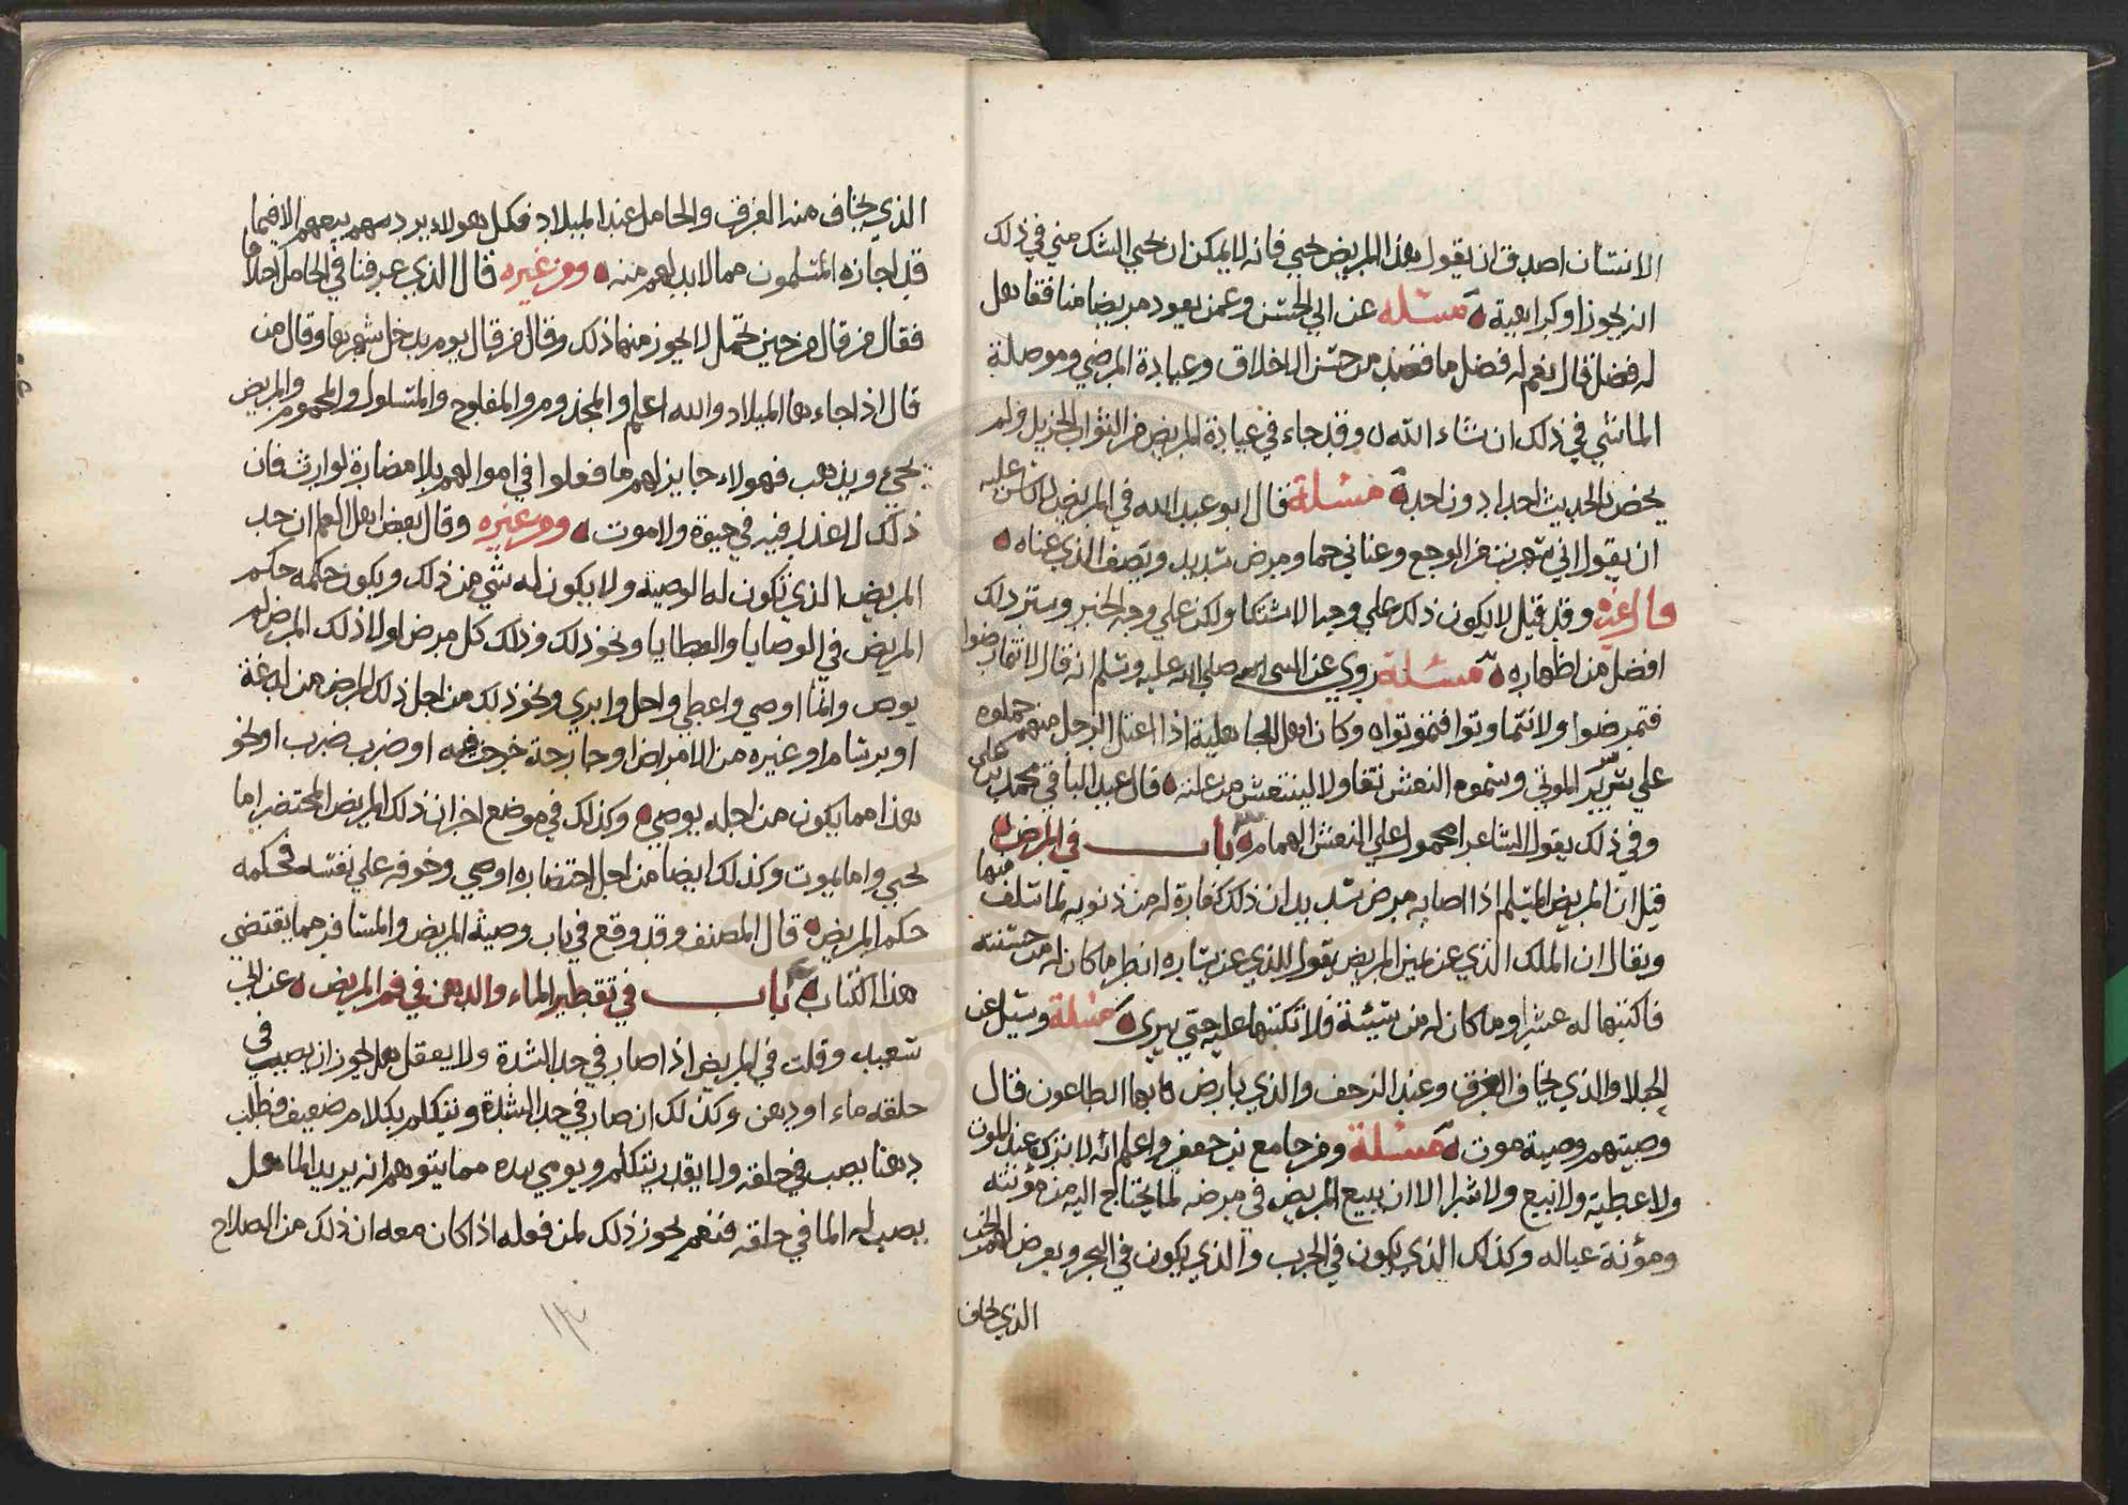 الانسان اصدق ان يقول هذا المريض لحيي فانه لا يمكن ان يحيي الشك مني في ذلك
انه يجوز او كراهية مسئلة عن ابي الحسن وعمن يعود مريضا منافقا هل
له فضل قال نعم له فضل ما قصد من حسن الاخلاق وعيادة المرضي وموصلة
الماشي في ذلك ان شاء الله وقد جاء في عيادة المريض من الثواب الجزيل ولم
يخص بالحديث احدا دون احد مسئلة قال ابو عبد الله في المريض لا باس عليه
ان يقول اني سهرت من الوجع وعناني حما ومرض شديد ويصف الذي عناه
قال غيره وقد قيل لا يكون ذلك علي وجه الاشتكا ولكن علي وجه الخبر وستر ذلك
افضل من اظهاره مسئلة روي عن النبي صلي الله عليه وسلم انه قال لا تمارضوا
فتمرضوا ولا تتماوتوا فتموتوا وكان اهل الجاهلية اذا اعتل الرجل منهم حملوه
علي سرير الموتي وسموه النعش تفاولا لينتعش من علته قال عبد الباقي محمد بن علي
وفي ذلك يقول الشاعر امحمول علي النعش الهمام باب في المرض
قيل ان المريض المسلم اذا اصابه مرض شديد ان ذلك كفارة له من ذنوبه لما سلف منها
ويقال ان الملك الذي عن يمين المريض يقول للذي عن يساره انظر ما كان له من حسنة
فاكتبها له عشرا وما كان له من سيئة فلا تكتبها عليه حتي يبرئ مسئلة وسئل عن
الحبلا والذي يخاف الغرق وعند الزحف والذي بارض بها الطاعون قال
وصيتهم وصية موت مسئلة ومن جامع بن جعفر واعلم انه لا عند الموت
ولا عطية ولا بيع ولا شرا الا ان يبيع المريض في مرضه لما يحتاج اليه من مؤنته
ومؤنة عياله وكذلك الذي يكون في الحرب والذي يكون في البحر ويعرض لهم الخب
الذي يخاف
الذي يخاف منه الغرق والحامل عند الميلاد فكل هولاء يرد بيعهم الا فيما
قد اجازه المسلمون مما لا بد لهم منه ومن غيره قال الذي عرفنا في الحامل اختلافا
فقال من قال من حين تحمل لا يجوز منها ذلك وقال من قال يوم يدخل شهرها وقال من
قال اذا جاءها الميلاد والله اعلم والمجذوم والمفلوج والمسلول والمحموم والمريض
يجيء ويذهب فهولاء جايز لهم ما فعلوا في اموالهم بلا مضارة لوارث فان
ذلك لا عذر فيه في حيوة ولا موت ومن غيره وقال بعض اهل العلم ان حد
المريض الذي تكون له الوصية ولا يكون له شي من ذلك ويكون حكمه حكم
المريض في الوصايا والعطايا ونحو ذلك وذلك كل مرض لولا ذلك المرض لم
يوص وانما اوصي واعطي واحل وابري ونحو ذلك من اجل ذلك المرض من
او برسام او غيره من الامراض او جارحة خرجت فيه او ضرب ضرب او نحو
هذا مما يكون من اجله يوصي وكذلك في موضع اخر ان ذلك المريض المحتضر اما
يحيي واما يموت وكذلك ايضا من اجل احتضاره اوصي وخوفه علي نفسه فحكمه
حكم المريض قال المصنف وقد وقع في باب وصية المريض والمسافر مما يقتضي
هذا الكتاب باب في تقطير الماء والدهن في فم المريض عن ابي
سعيد وقلت في المريض اذا صار في حد الشدة ولا يعقل هل يجوز ان يصب في
حلقه ماء او دهن وكذلك ان صار في حد الشدة ويتكلم بكلام ضعيف فطلب
دهنا يصب في حلقه ولا يقدر يتكلم ويومي بيده مما يتوهم انه يريد الما هل
يصب له الما في حلقه فنعم يجوز ذلك لمن فعله اذا كان معه ان ذلك من الصلاح
١٣